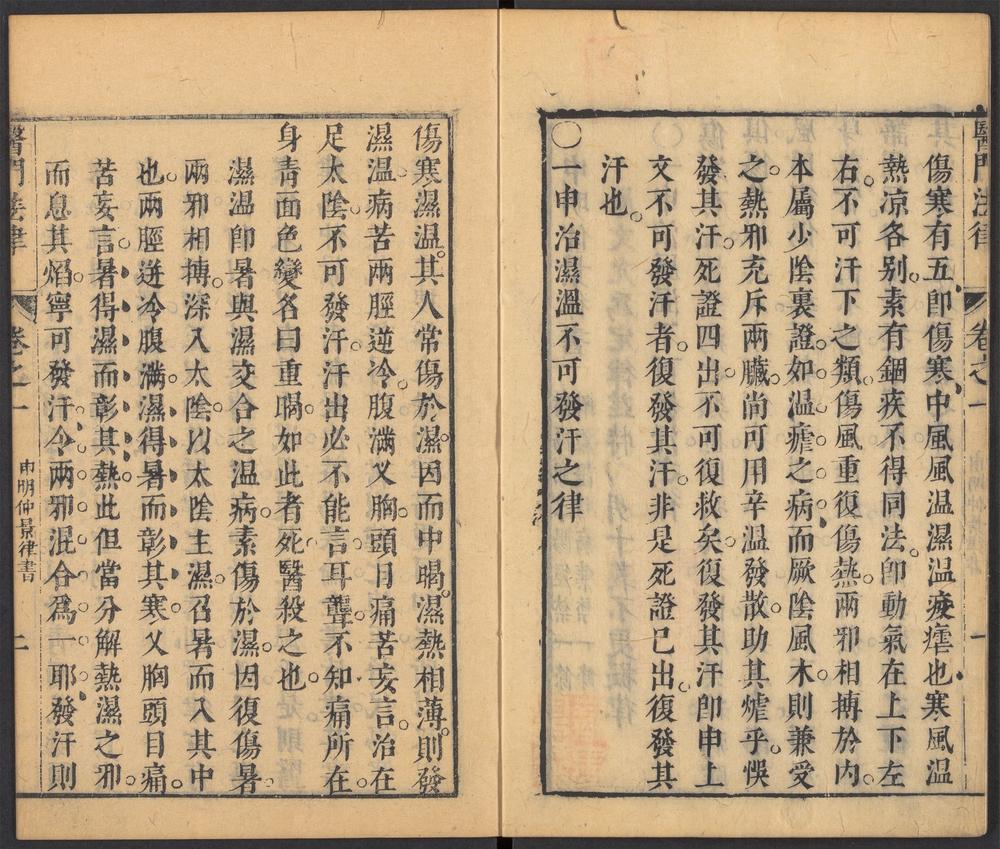 醫門法律 卷之一 一
傷寒有五卽傷寒中風風温濕温疫瘧也寒風温
熱凉各别素有錮疾不得同法卽動氣在上下左
右不可汗下之類傷風重復傷熱兩邪相搏於内
本屬少陰裏證如温瘧之病而厥陰風木則兼受
之熱邪充斥兩臟尚可用辛温發散助其爐乎悞
發其汗死證四出不可復救矣復發其汗卽申上
文不可發汗者復發其汗非是死證已出復發其
汗也
〇一申治濕溫不可發汗之律
傷寒濕温其人常傷於濕因而中暍濕熱相薄則發
濕温病苦兩脛逆冷腹滿叉胸頭目痛苦妄言治在
足太陰不可發汗汗出必不能言耳聾不知痛所在
身青面色變名曰重暍如此者死醫殺之也
濕温卽暑與濕交合之温病素傷於濕因復傷暑
兩邪相搏深入太陰以太陰主濕召暑而入其中
也兩脛逆冷腹滿濕得暑而彰其寒叉胸頭目痛
苦妄言暑得濕而彰其熱此但當分解熱濕之邪
而息其焰寧可發汗令兩邪混合爲一耶發汗則
醫門法律 卷之一 申明仲景律書 二